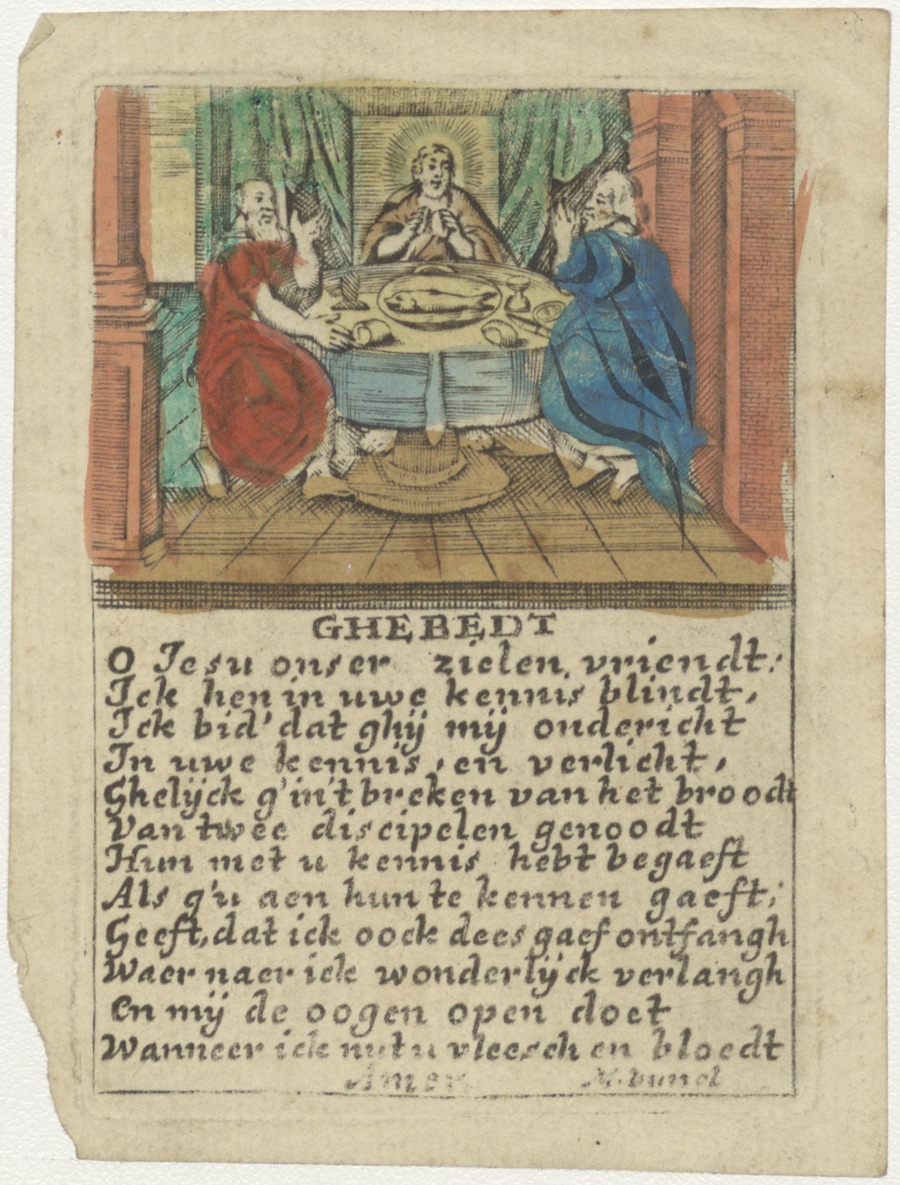 GHEBEDT
O Jesu onser zielen vriendt:
Ick ben in uwe kennis blindt,
Ick bid' dat ghij mij ondericht
In uwe kennis, en verlicht,
Ghelijck g'in't breken van het broodt
Van twee discipelen genoodt
Hun met u kennis hebt begaeft
Als g'u aen hun te kennen gaeft;
Geeft, dat ick oock dees gaef ontfangh
Waer naer ick wonderlijck verlangh
en mij de oogen open doet
Wanneer ick nut u vleesch en bloedt
Amen M. bunel